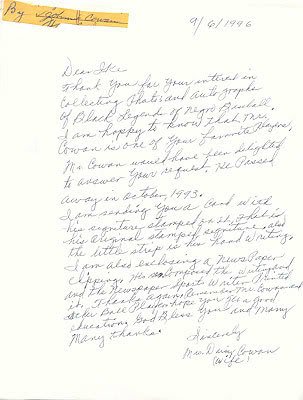 By
9/6/1996
Dear Ike
Thank You for Your interest in
Collecting Photos and Autographs
of Black Legends of Negro Baseball.
I am happy to know that Mr.
Cowan is one of Your favorite Players,
Mr Cowan would have been delighted
to answer Your request. He Passed
Away in October, 1993.
I am sending You a Card with
his signature stamped on it. that is
his original stamped signature. also
the little strip is his hand writing.
I am also enclosing a News Paper
clipping. He composed the
and the Newspaper Sport Writer Printed
it. Thanks again. Remember Mr. Cowan and
Ball hope You get a good
education. God Bless You and Many
Many thanks.
Sincerely
Mrs. Daisy Cowan
(Wife)